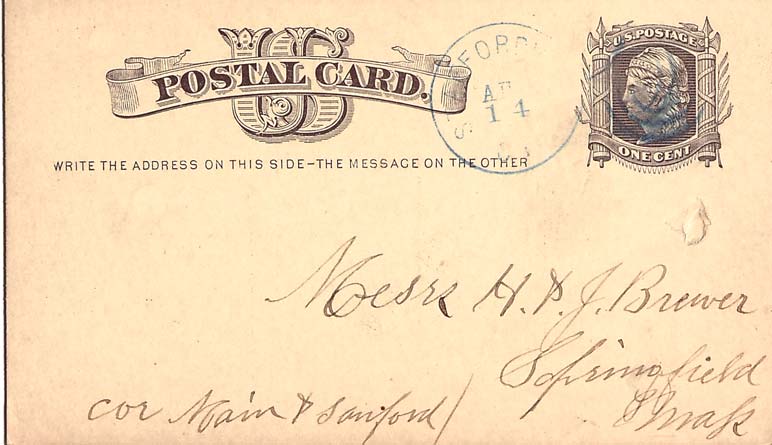 US
POSTAL CARD.
WRITE THE ADDRESS ON THIS SIDE-THE MESSAGE ON THE OTHER
AP
14
U.S. POSTAGE
ONE CENT
Messrs H. & J. Brewer
Springfield
Mass
cor Main & Sanford